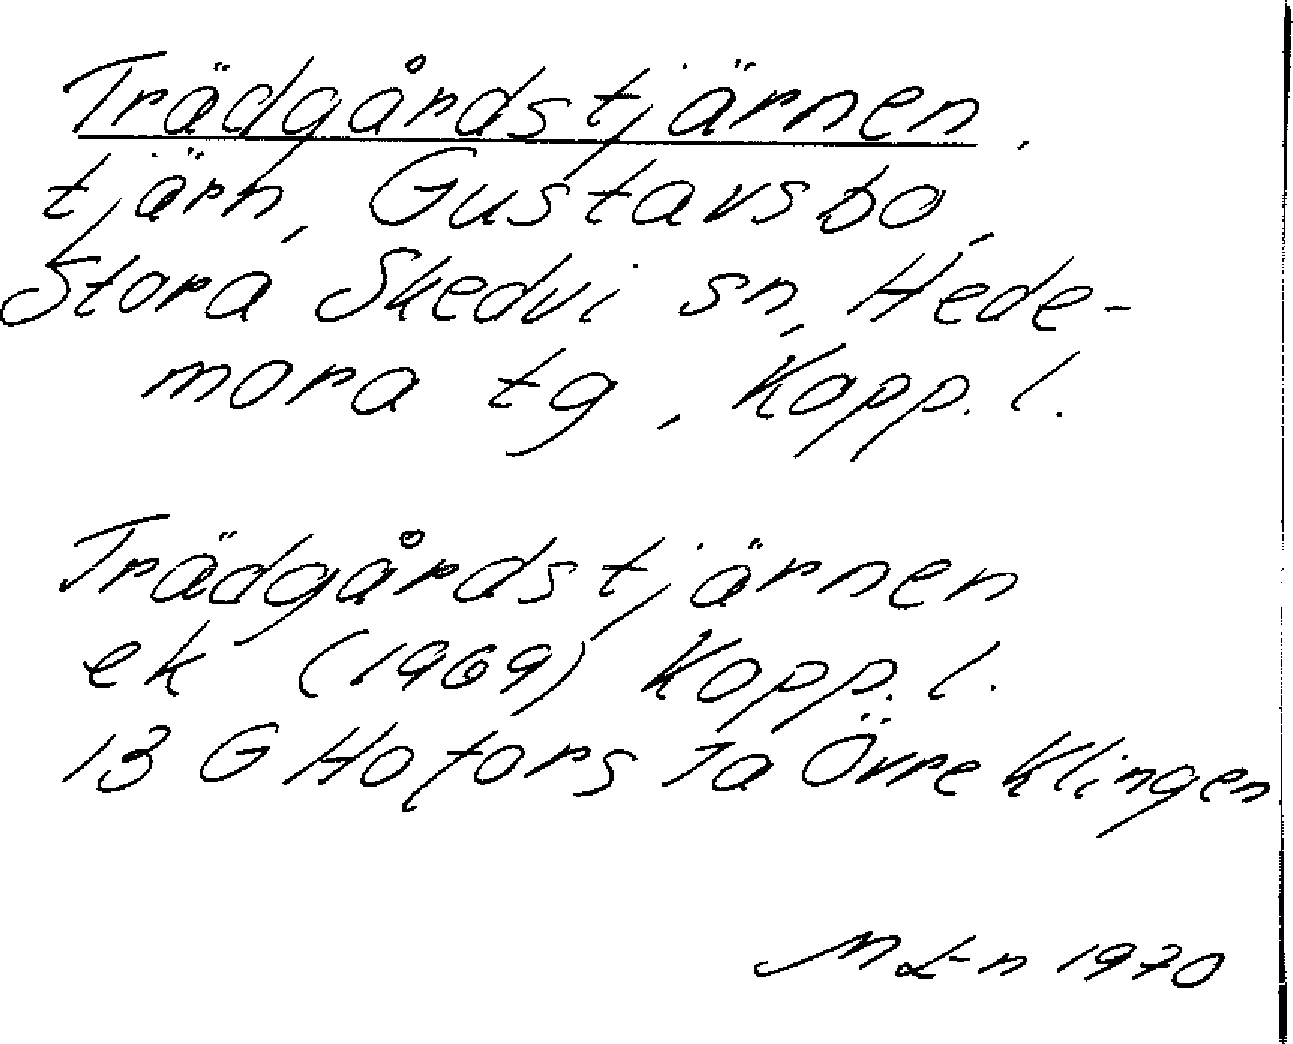 Trädgårdstjärnen,
tjärn, Gustavsbo,
Stora Skedvi sn, Hede-
mora tg, Kopp. l.
Trädgårdstjärnen
ek (1969) Kopp. l.
13 G Hofors 1a Övre Klingen
1970